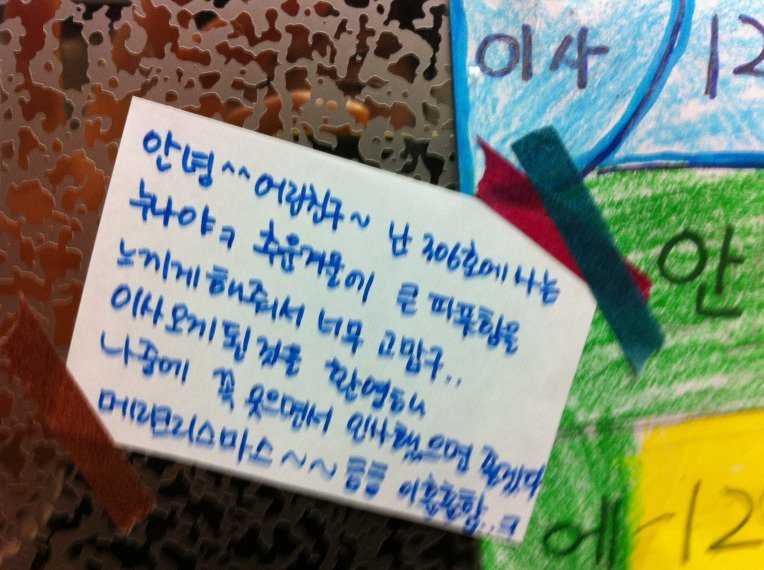 안녕^^어랍친구~ 난 306호에 사는
누나야ㅋ 추운겨울에 큰 따뜻함을
느끼게 해줘서 너무 고맙구..
이사오게 된 것을 환영해!!
나중에 꼭 웃으면서 인사했으면 좋겠다
메리크리스마스~~ 흠흠 이훈훈함..ㅋ
이사
12
안
에
-12